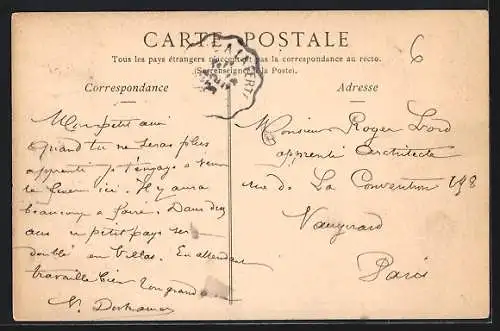 CARTE POSTALE
Tous les pays étrangers n'acceptent pas la correspondance au recto.
(Se renseigner à la Poste).
6
Correspondance
Mon petit ami
Quand tu ne seras plus
apprenti je t'engage à venir
le finir ici. Il y aura
beaucoup à faire. Dans dix
ans ce petit pays sera
doublé en Villas. En attendant
travaille bien Ton grand
Adresse
Monsieur Roger
apprenti architecte
rue de La Convention 198
Vaugirard
Paris